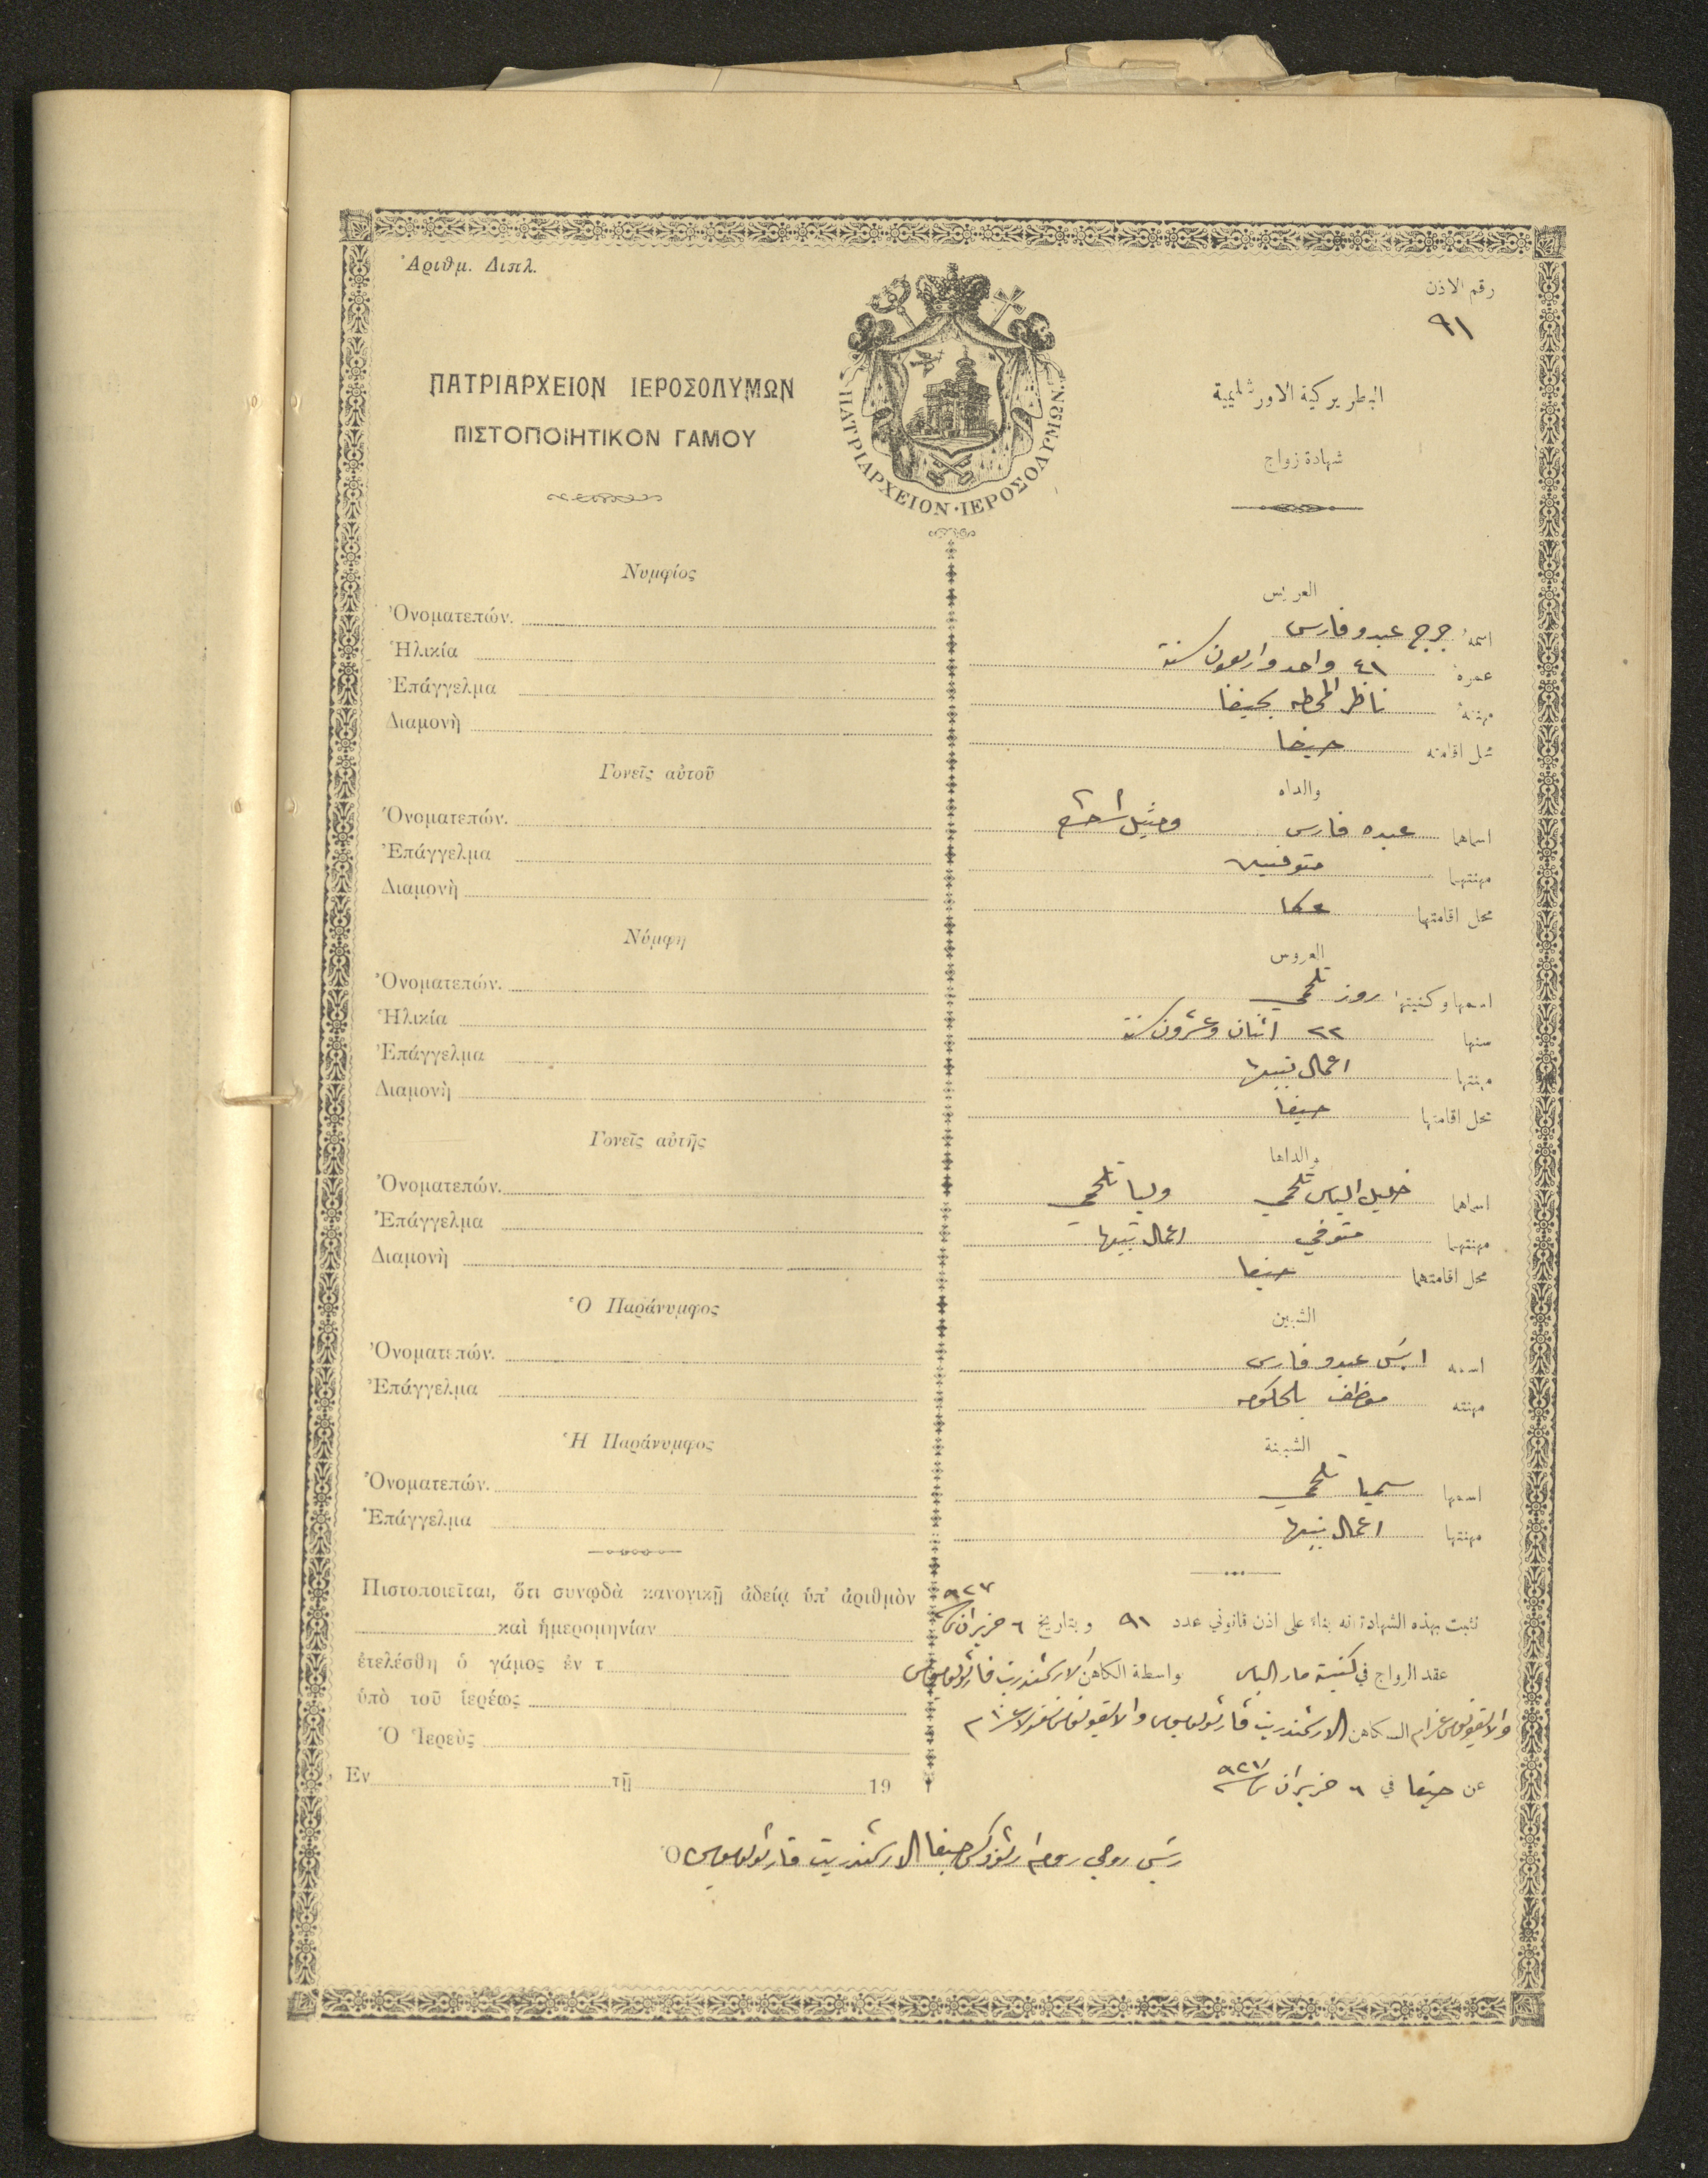 Ἀριθμ. Διπλ.
رقم الاذن
٩١
ΠΑΤΡΙΑΡΧΕΙΟΝ ΙΕΡΟΣΟΛΥΜΩΝ
ΠΙΣΤΟΠΟΙΗΤΙΚΟΝ ΓΑΜΟΥ
ΠΑΤΡΙΑΡΧΕΙΟΝ·ΙΕΡΟΣΟΛΥΜΩΝ
البطريركية الاورشليمية
شهادة زواج
Νυμφίος
Ὀνοματεπών.
Ἡλικία
Ἐπάγγελμα
Διαμονὴ
Γονεῖς αὐτοῦ
Ὀνοματεπών.
Ἐπάγγελμα
Διαμονὴ
Νύμφη
Ὀνοματεπών.
Ἡλικία
Ἐπάγγελμα
Διαμονὴ
Γονεῖς αὐτῆς
Ὀνοματεπών.
Ἐπάγγελμα
Διαμονὴ
Ὁ Παράνυμφος
Ὀνοματεπών.
Ἐπάγγελμα
Ἡ Παράνυμφος
Ὀνοματεπών.
Ἐπάγγελμα
Πιστοποιεῖται, ὅτι συνῳδὰ κανονικῇ ἀδείᾳ ὑπ' ἀριθμὸν
καὶ ἡμερομηνίαν
ἐτελέσθη ὁ γάμος ἐν τ
ὑπὸ τοῦ ἱερέως
Ὁ Ἱερεὺς
Ἐν τῇ 19
العريس
اسمهُ جرج عبدو فارس
عمرهُ ٤١ واحد واربعون سنة
مهنتهُ ناظر المحطه بحيفا
محل اقامته حيفا
والداه
اسماهما عبده فارس
مهنتهما متوفيين
محل اقامتهما عكا
العروس
اسمها وكنيتها روز تلحمي
سنها ٢٢ اثنان وعشرون سنة
مهنتها اعمال بيتها
محل اقامتها حيفا
والداها
اسماهما خليل الياس تلحمي وليا تلحمي
مهنتهما متوفي اعمال بيتها
محل اقامتهما حيفا
الشبين
اسمه عبدو فارس
مهنته موظف بالحكومه
الشبينة
اسمها تلحمي
مهنتها اعمال بيتها
نثبت بهذه الشهادة انه بناء على اذن قانوني عدد ٩١ وبتاريخ ٦ حزيران سنة ٩٢٧
عقد الزواج في كنيسة مار الياس واسطة الكاهن الارشمندريت
الكاهن الارشمندريت
عن حيفا في ٦ حزيران سنة ٩٢٧
Ὁ
رئيس روحي روم ارثوذكس حيفا الارشمندريت